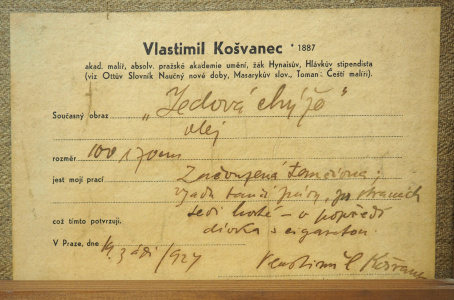 Vlastimil Košvanec * 1887
akad. malíř, absolv. pražské akademie umění, žák Hynaisův, Hlávkův stipendista
(viz Ottův Slovník Naučný nové doby, Masarykův slov., Toman: Čeští malíři).
Současný obraz „Jedová chýže"
olej
rozměr 100 170 cm
jest mojí prací Znázorněná
tančí páry, po stranách
sedí hosté – v popředí
dívka s cigaretou.
což tímto potvrzuji.
V Praze, dne 19. září /927
Vlastimil Košvanec